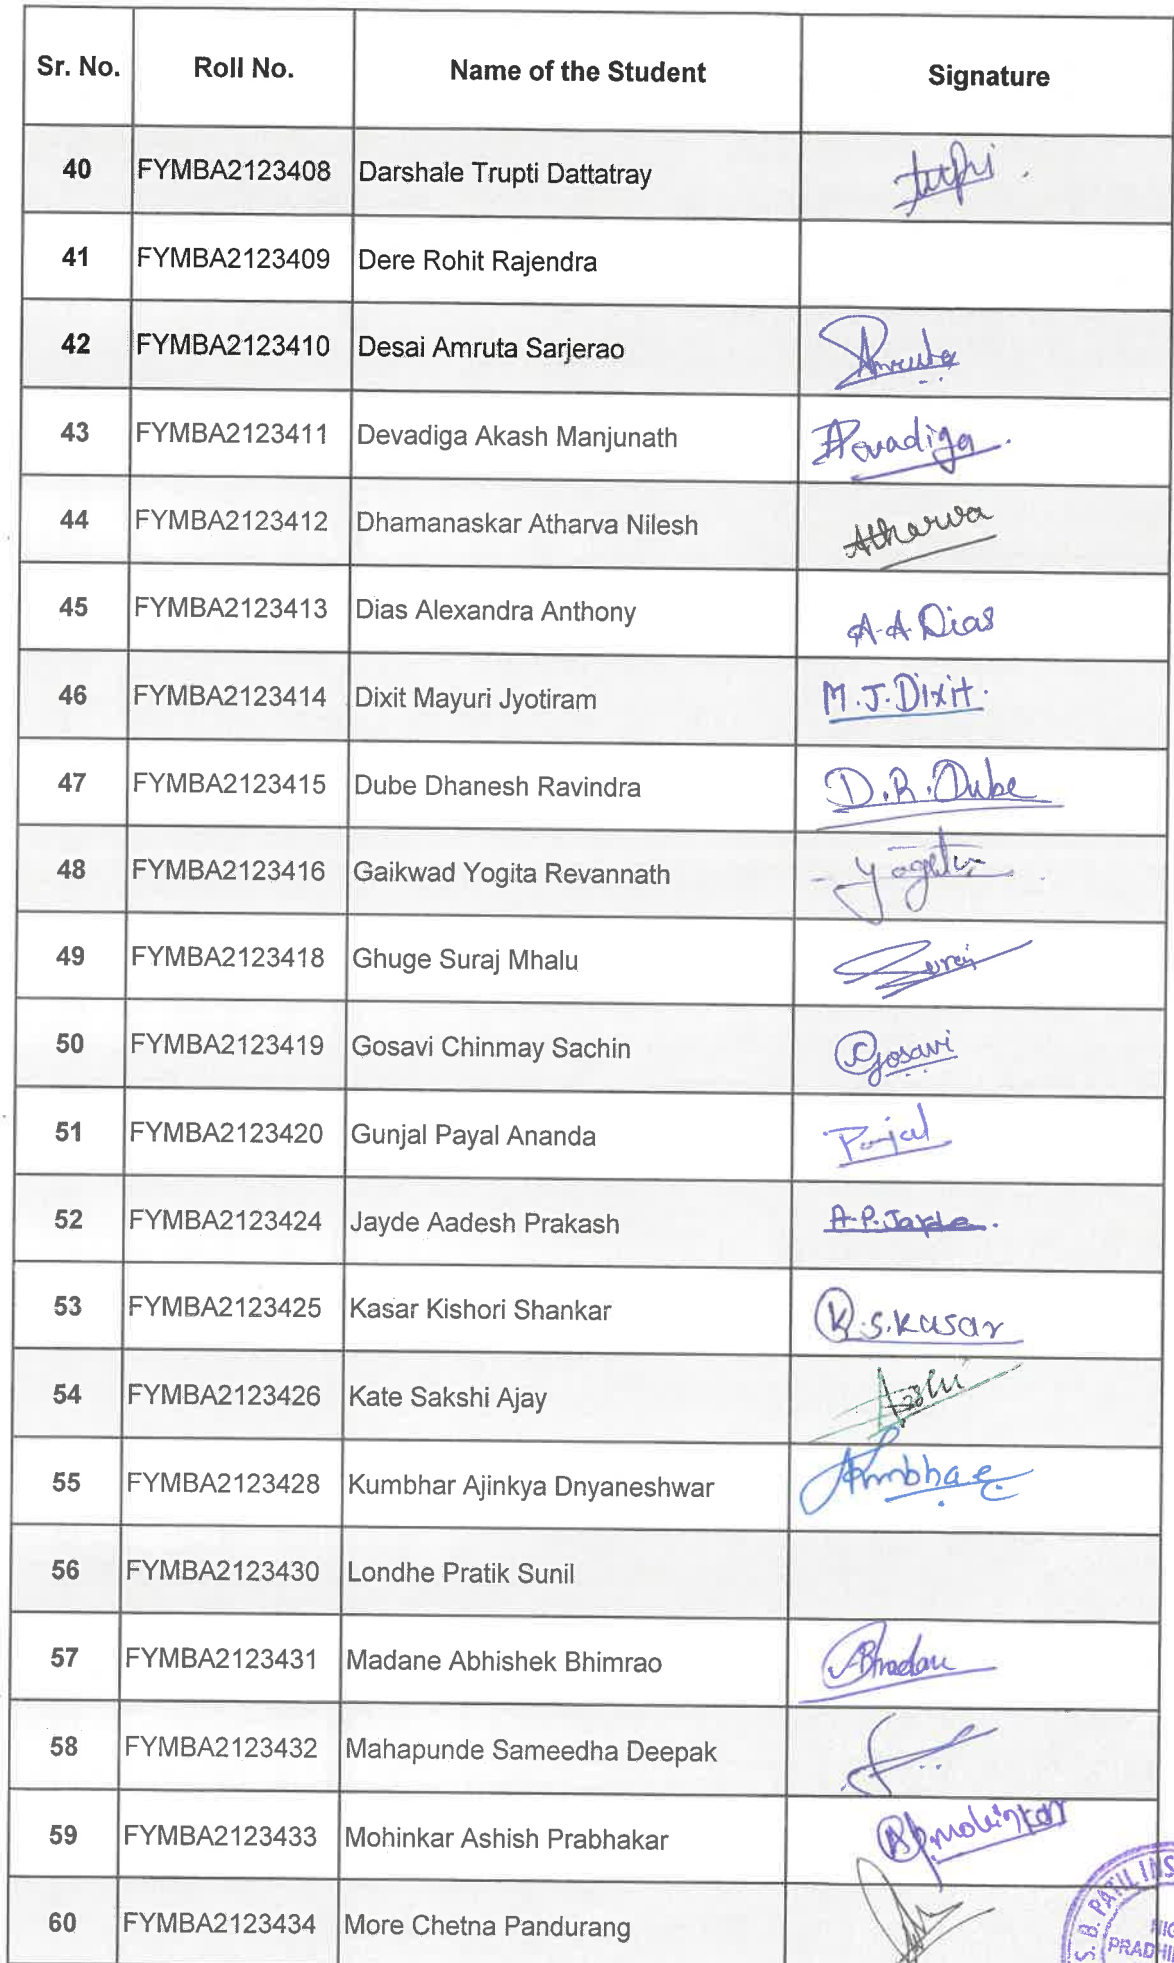 Sr. No. Roll No. Name of the Student Signature
40 FYMBA2123408 Darshale Trupti Dattatray Trupti
41 FYMBA2123409 Dere Rohit Rajendra
42 FYMBA2123410 Desai Amruta Sarjerao Amruta
43 FYMBA2123411 Devadiga Akash Manjunath Devadiga
44 FYMBA2123412 Dhamanaskar Atharva Nilesh Atharva
45 FYMBA2123413 Dias Alexandra Anthony A-A Dias
46 FYMBA2123414 Dixit Mayuri Jyotiram M.J.Dixit.
47 FYMBA2123415 Dube Dhanesh Ravindra D.R.Dube
48 FYMBA2123416 Gaikwad Yogita Revannath Yogita
49 FYMBA2123418 Ghuge Suraj Mhalu Suraj
50 FYMBA2123419 Gosavi Chinmay Sachin Gosavi
51 FYMBA2123420 Gunjal Payal Ananda
52 FYMBA2123424 Jayde Aadesh Prakash A.P.Jayde.
53 FYMBA2123425 Kasar Kishori Shankar K.S.Kasar
54 FYMBA2123426 Kate Sakshi Ajay
55 FYMBA2123428 Kumbhar Ajinkya Dnyaneshwar
56 FYMBA2123430 Londhe Pratik Sunil
57 FYMBA2123431 Madane Abhishek Bhimrao
58 FYMBA2123432 Mahapunde Sameedha Deepak
59 FYMBA2123433 Mohinkar Ashish Prabhakar
60 FYMBA2123434 More Chetna Pandurang
S. B. PATIL INS
PRADHI